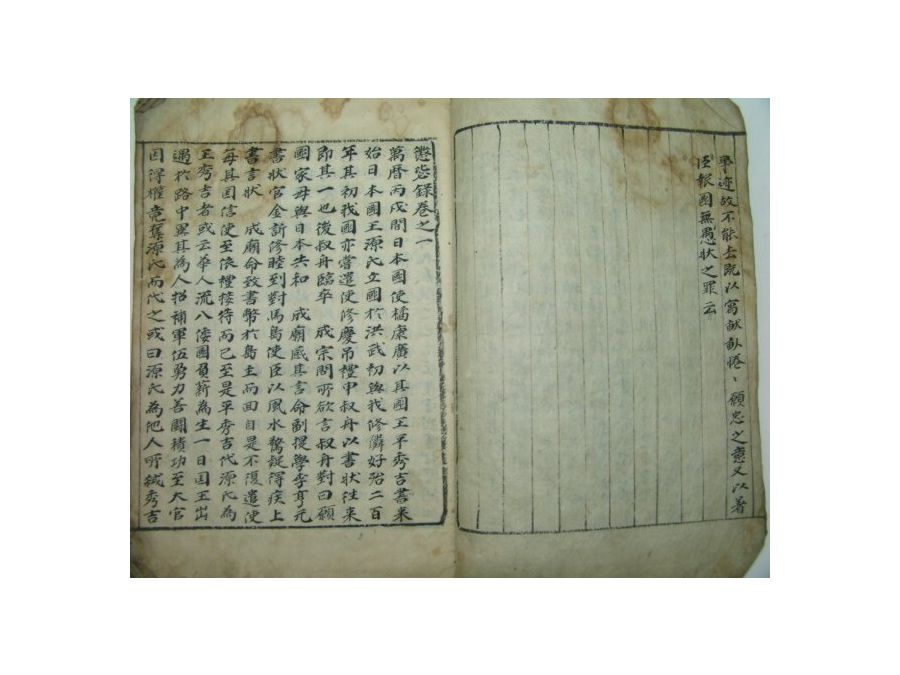 事迹故不能去既以寓畎畝惓〻願忠之意又以著
臣報國無愚狀之罪云
懲毖錄卷之一
萬曆丙戌間日本國使橘康廣以其國王平秀吉書来
始日本國王源氏立國於洪武初與我修隣好殆二百
年其初我國亦嘗遣使修慶吊禮申叔舟以書狀往来
即其一也後叔舟臨卒 成宗問所欲言叔舟對曰願
國家毋與日本失和 成廟感其言命副提學李亨元
書狀官金訢修睦到對馬島使臣以風水驚疑得疾上
書言狀 成廟命致書幣於島主而回自是不復遣使
每其国信使至依禮接待而已至是平秀吉代源氏為
王秀吉者或云華人流入倭國負薪為生一日国王出
遇於路中異其為人招補軍伍勇力善鬪積功至大官
因得權竟奪源氏而代之或曰源氏為他人所弑秀吉